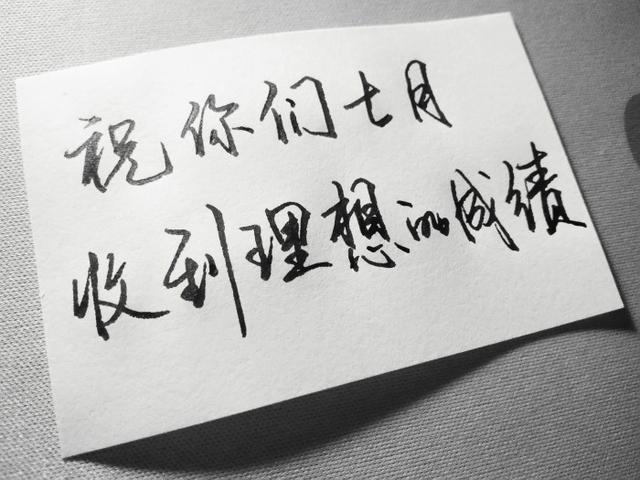 祝你们七月
收到理想的成绩